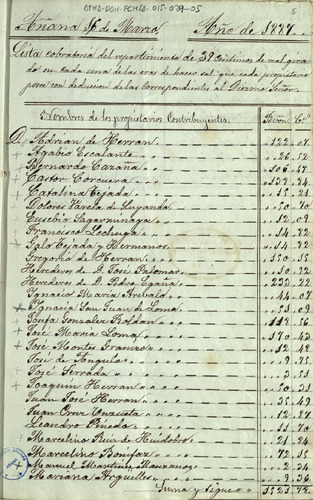 ATHA-DOH-FCHSA-015-029-05
5
Añana 8 de Marzo, Año de 1887.
Lista cobratoria del repartimiento de 38 céntimos de real gira
do en cada una de las eras de hacer sal que cada propietario
posee con deducion de las correspondientes al Diezmo Señor.
Nombres de los propietarios Contribuyentes. Rvon. Cs.
D. Adrian de Herran 122.07
Agabio Escalante 26.52
Bernardo Carana 106.47
Castor Corcuera
Catalina Tejada 15.21
Dolores Varona de Luyando 50.70
Eusebio Sagarminaga 12.09
Francisco Lechuga 14.82
Galo Tejada y Hermanos 14.82
Gregorio de Herran
Herederos de D. José Palomar
Herederos de D. Pedro Egaña
Ignacio Maria Arebalo 44.07
Ignacia San Juan de Loma 51.09
Josefa Gonzalez Roldan
José Maria Loma
José Montes Granizo 12.48
José de Angulo
José Serrada
Joaquin Herran
Juan José Herran 35.49
Juan Cruz
Leandro Pineda 11.70
Marcelino Ruiz de Huidobro 21.84
Marcelino Bonifaz 72.15
Manuel Martinez Manzanos 2.34
Mariana Arguelles 9.36
Suma y sigue